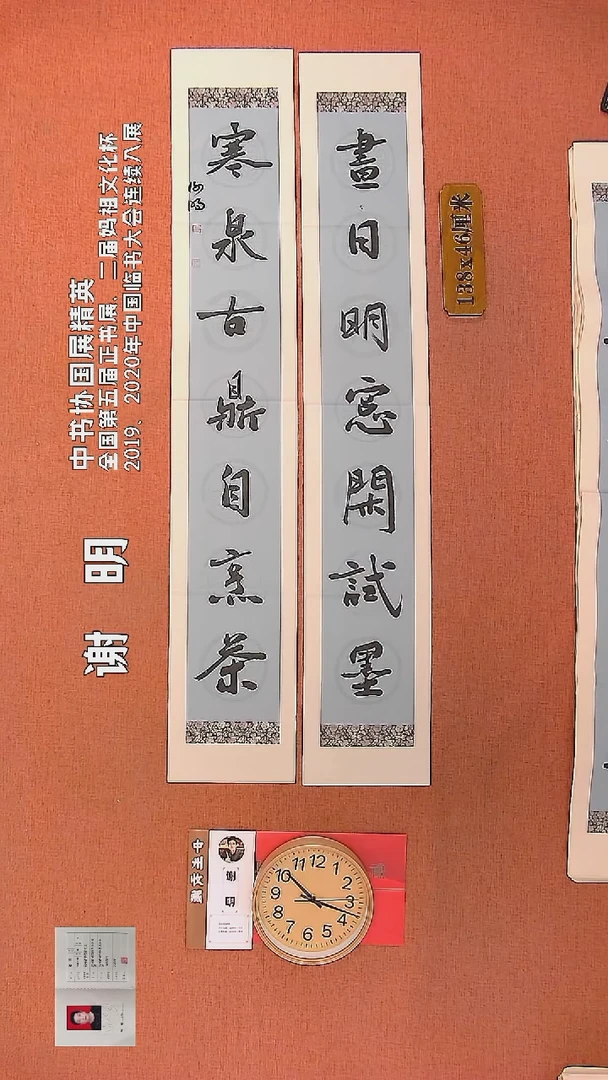 晝日明窓閑試墨
寒泉古鼎自烹茶
138x46厘米
中书协国展精英
全国第五届正书展、二届妈祖文化杯
2019、2020年中国临书大会连续入展
谢 明
12
1
2
3
4
5
6
7
8
9
10
11